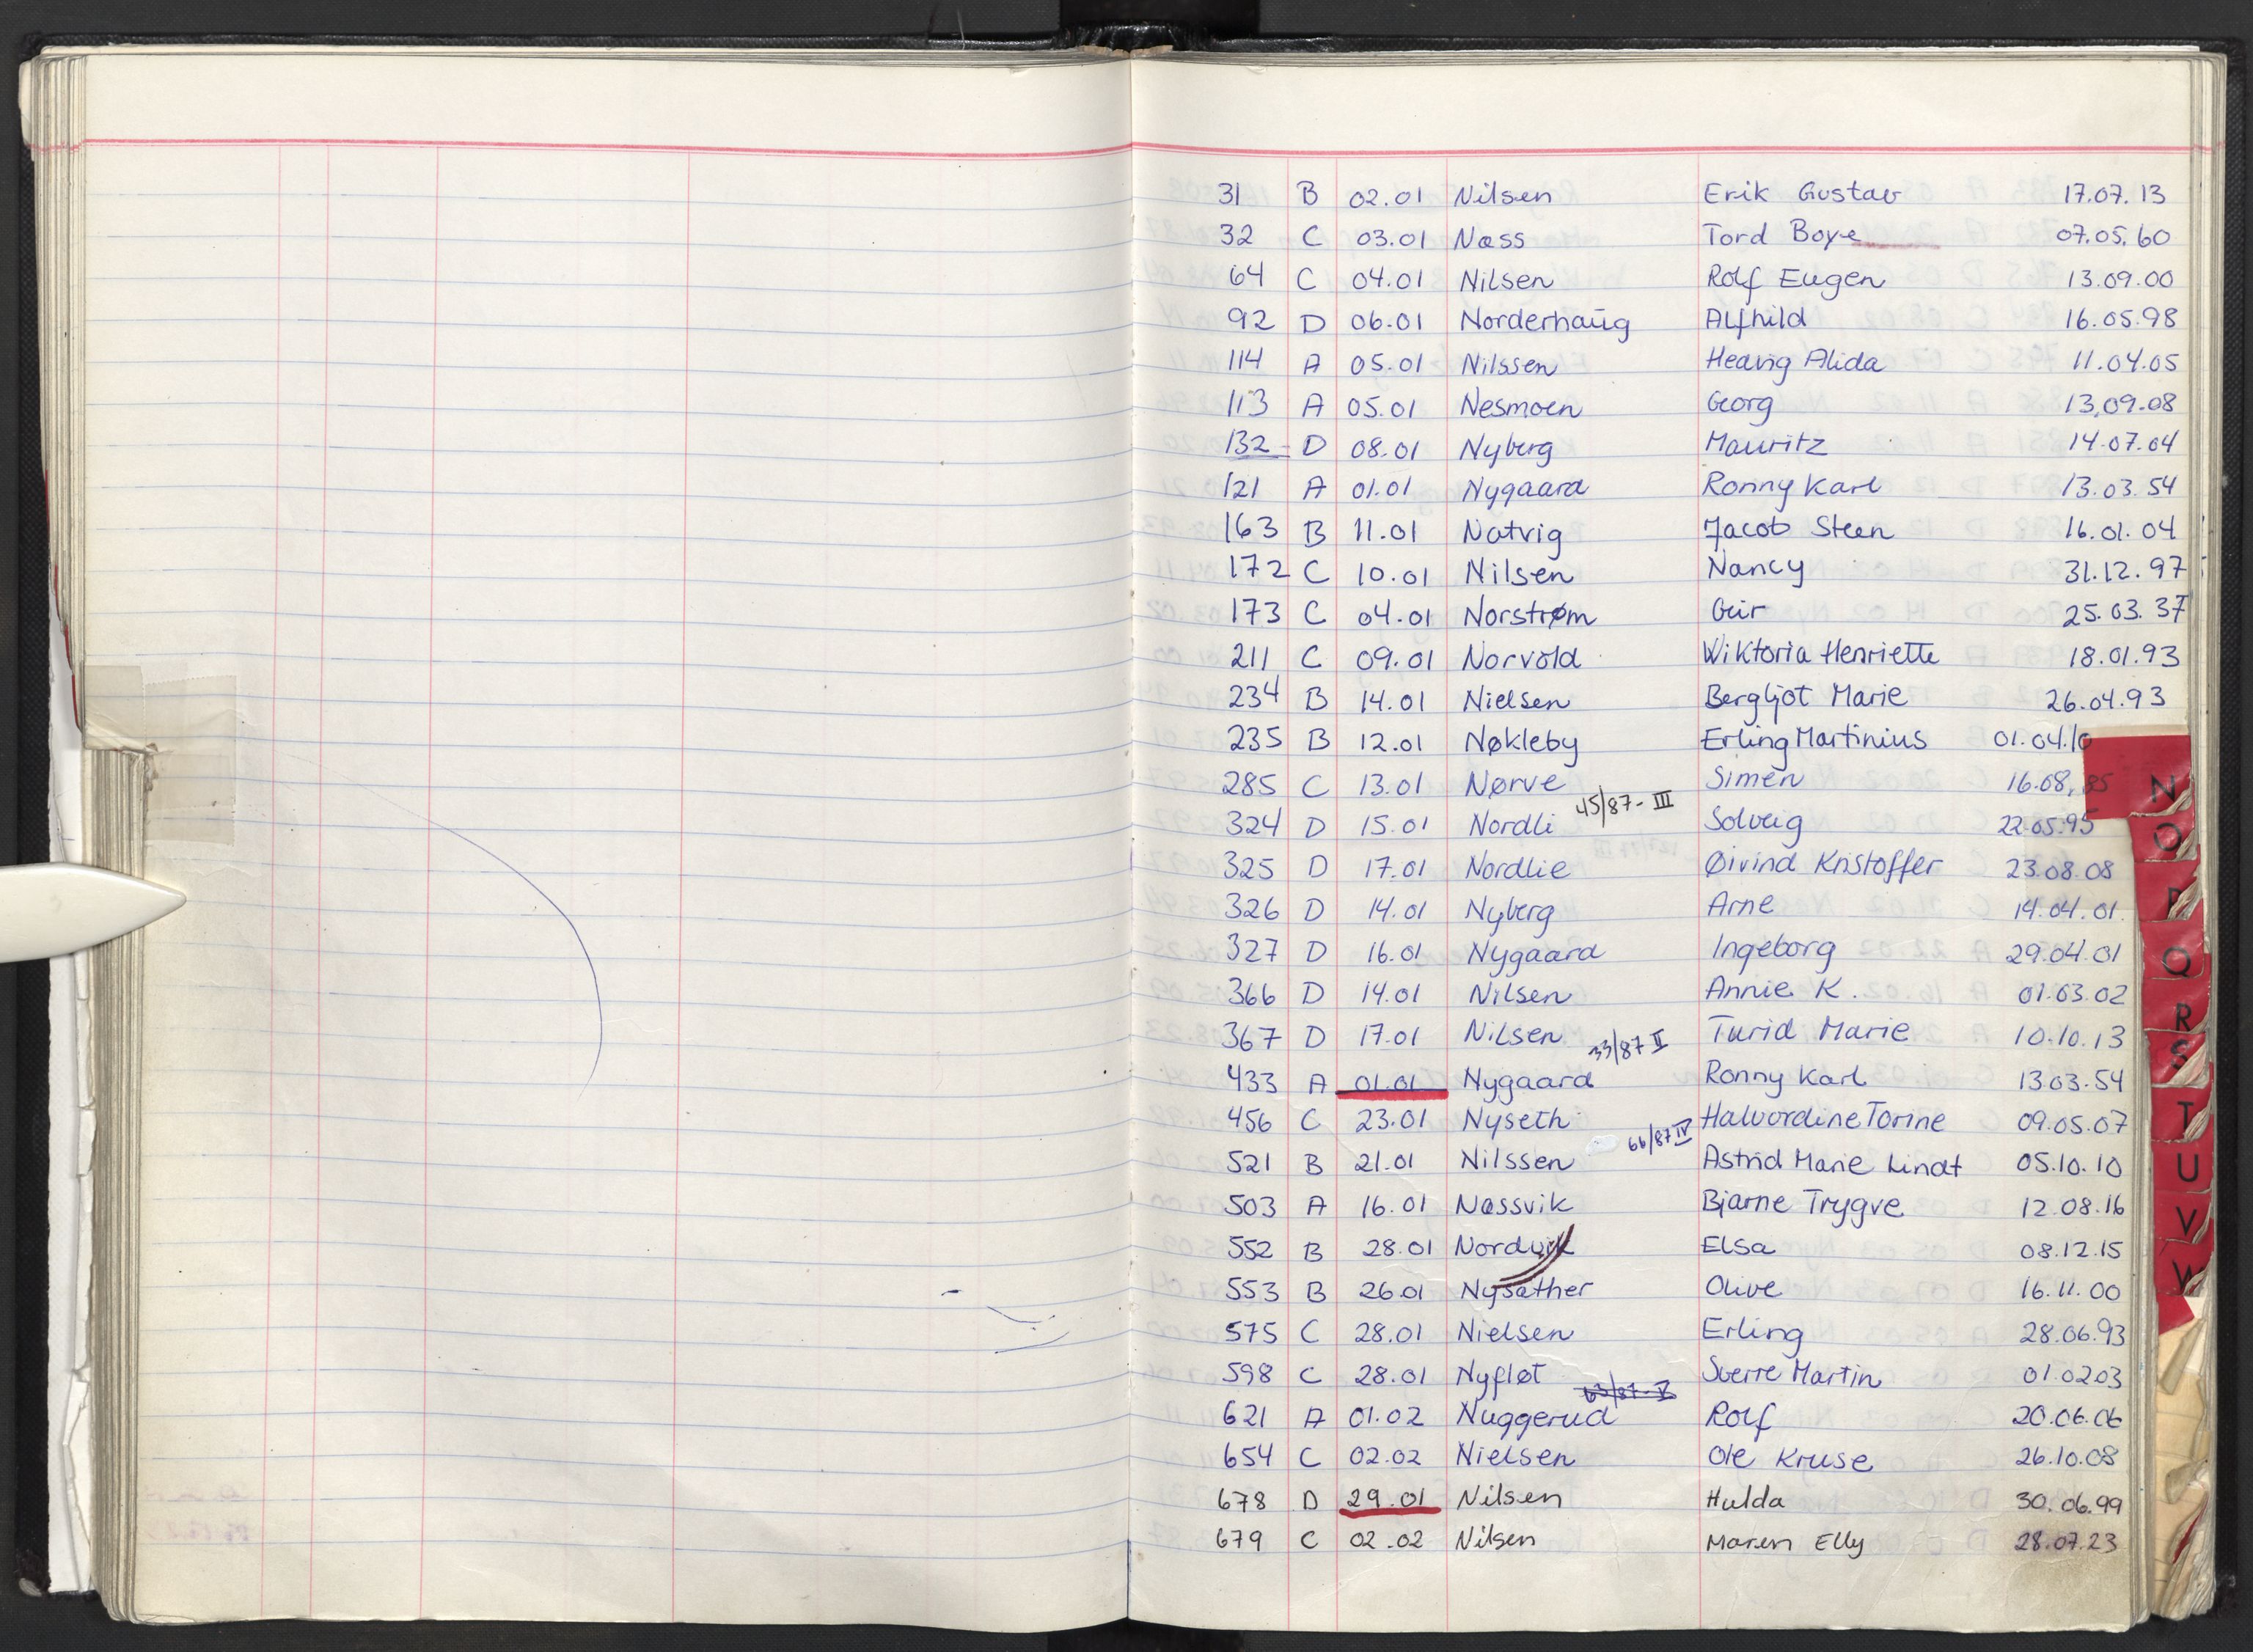 31 B 02.01 Nilsen Erik Gustav 17.07.13
32 C 03.01 Næss Tord Boye 07.05.60
64 C 04.01 Nilsen Rolf Eugen 13.09.00
92 D 06.01 Norderhaug Alfhild 16.05.98
114 A 05.01 Nilssen Hedvig Alida 11.04.05
113 A 05.01 Nesmoen Georg 13.09.08
132 D 08.01 Nyberg Mauritz 14.07.04
121 A 01.01 Nygaard Ronny Karl 13.03.54
163 B 11.01 Natvig Jacob Steen 16.01.04
172 C 10.01 Nilsen Nancy 31.12.97
173 C 04.01 Norstrøm Geir 25.03.37
211 C 09.01 Norvold Wiktoria Henriette 18.01.93
234 B 14.01 Nielsen Bergljot Marie 26.04.93
235 B 12.01 Nøkleby Erling Martinius 01.04.10
285 C 13.01 Nørve Simen 16.08.85
N
45/87-III
324 D 15.01 Nordli Solveig 22.05.95
O
325 D 17.01 Nordlie Øivind Kristoffer 23.08.08
326 D 14.01 Nyberg Arne 14.04.01
P
327 D 16.01 Nygaard Ingeborg 29.04.01
Q
366 D 14.01 Nilsen Annie K. 01.03.02
R
367 D 17.01 Nilsen Turid Marie 10.10.13
33/87 II
S
433 A 01.01 Nygaard Ronny Karl 13.03.54
456 C 23.01 Nyseth Halvordine Torine 09.05.07
T
66/87 IV
521 B 21.01 Nilssen Astrid Marie Lindt 05.10.10
U
503 A 16.01 Næssvik Bjarne Trygve 12.08.16
V
552 B 28.01 Nordvik Elsa 08.12.15
W
553 B 26.01 Nysæther Olive 16.11.00
575 C 28.01 Nielsen Erling 28.06.93
598 C 28.01 Nyfløt Sverre Martin 01.02.03
63/87-V
621 A 01.02 Nuggerud Rolf 20.06.06
654 C 02.02 Nielsen Ole Kruse 26.10.08
678 D 29.01 Nilsen Hulda 30.06.99
679 C 02.02 Nilsen Maren Elly 28.07.23